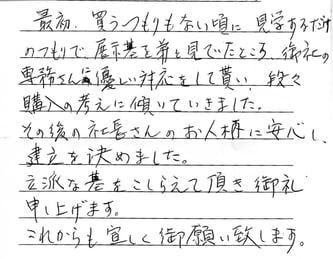 最初、買うつもりもない頃に見学するだけ
のつもりで、展示墓を見ていたところ、御社の
専務さんに優しい対応をして貰い、段々
購入の考えに傾いていきました。
その後の社長さんのお人柄に安心し、
建立を決めました。
立派な墓をこしらえて頂き御礼
申し上げます。
これからも宜しく御願い致します。